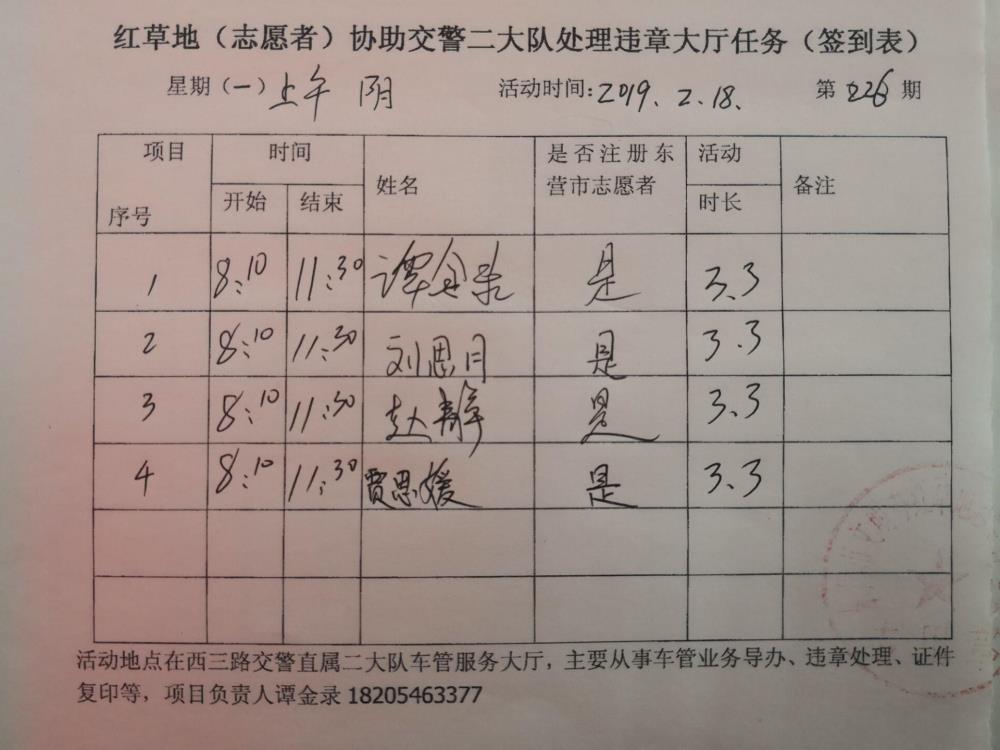 红草地（志愿者）协助交警二大队处理违章大厅任务（签到表）
星期（一）上午 阴 活动时间：2019.2.18. 第226期
项目 时间 姓名 是否注册东营市志愿者 活动时长 备注
序号 开始 结束
1 8:10 11:30 谭金录 是 3.3
2 8:10 11:30 刘思月 是 3.3
3 8:10 11:30 赵静 是 3.3
4 8:10 11:30 贾思媛 是 3.3
活动地点在西三路交警直属二大队车管服务大厅，主要从事车管业务导办、违章处理、证件
复印等，项目负责人谭金录 18205463377